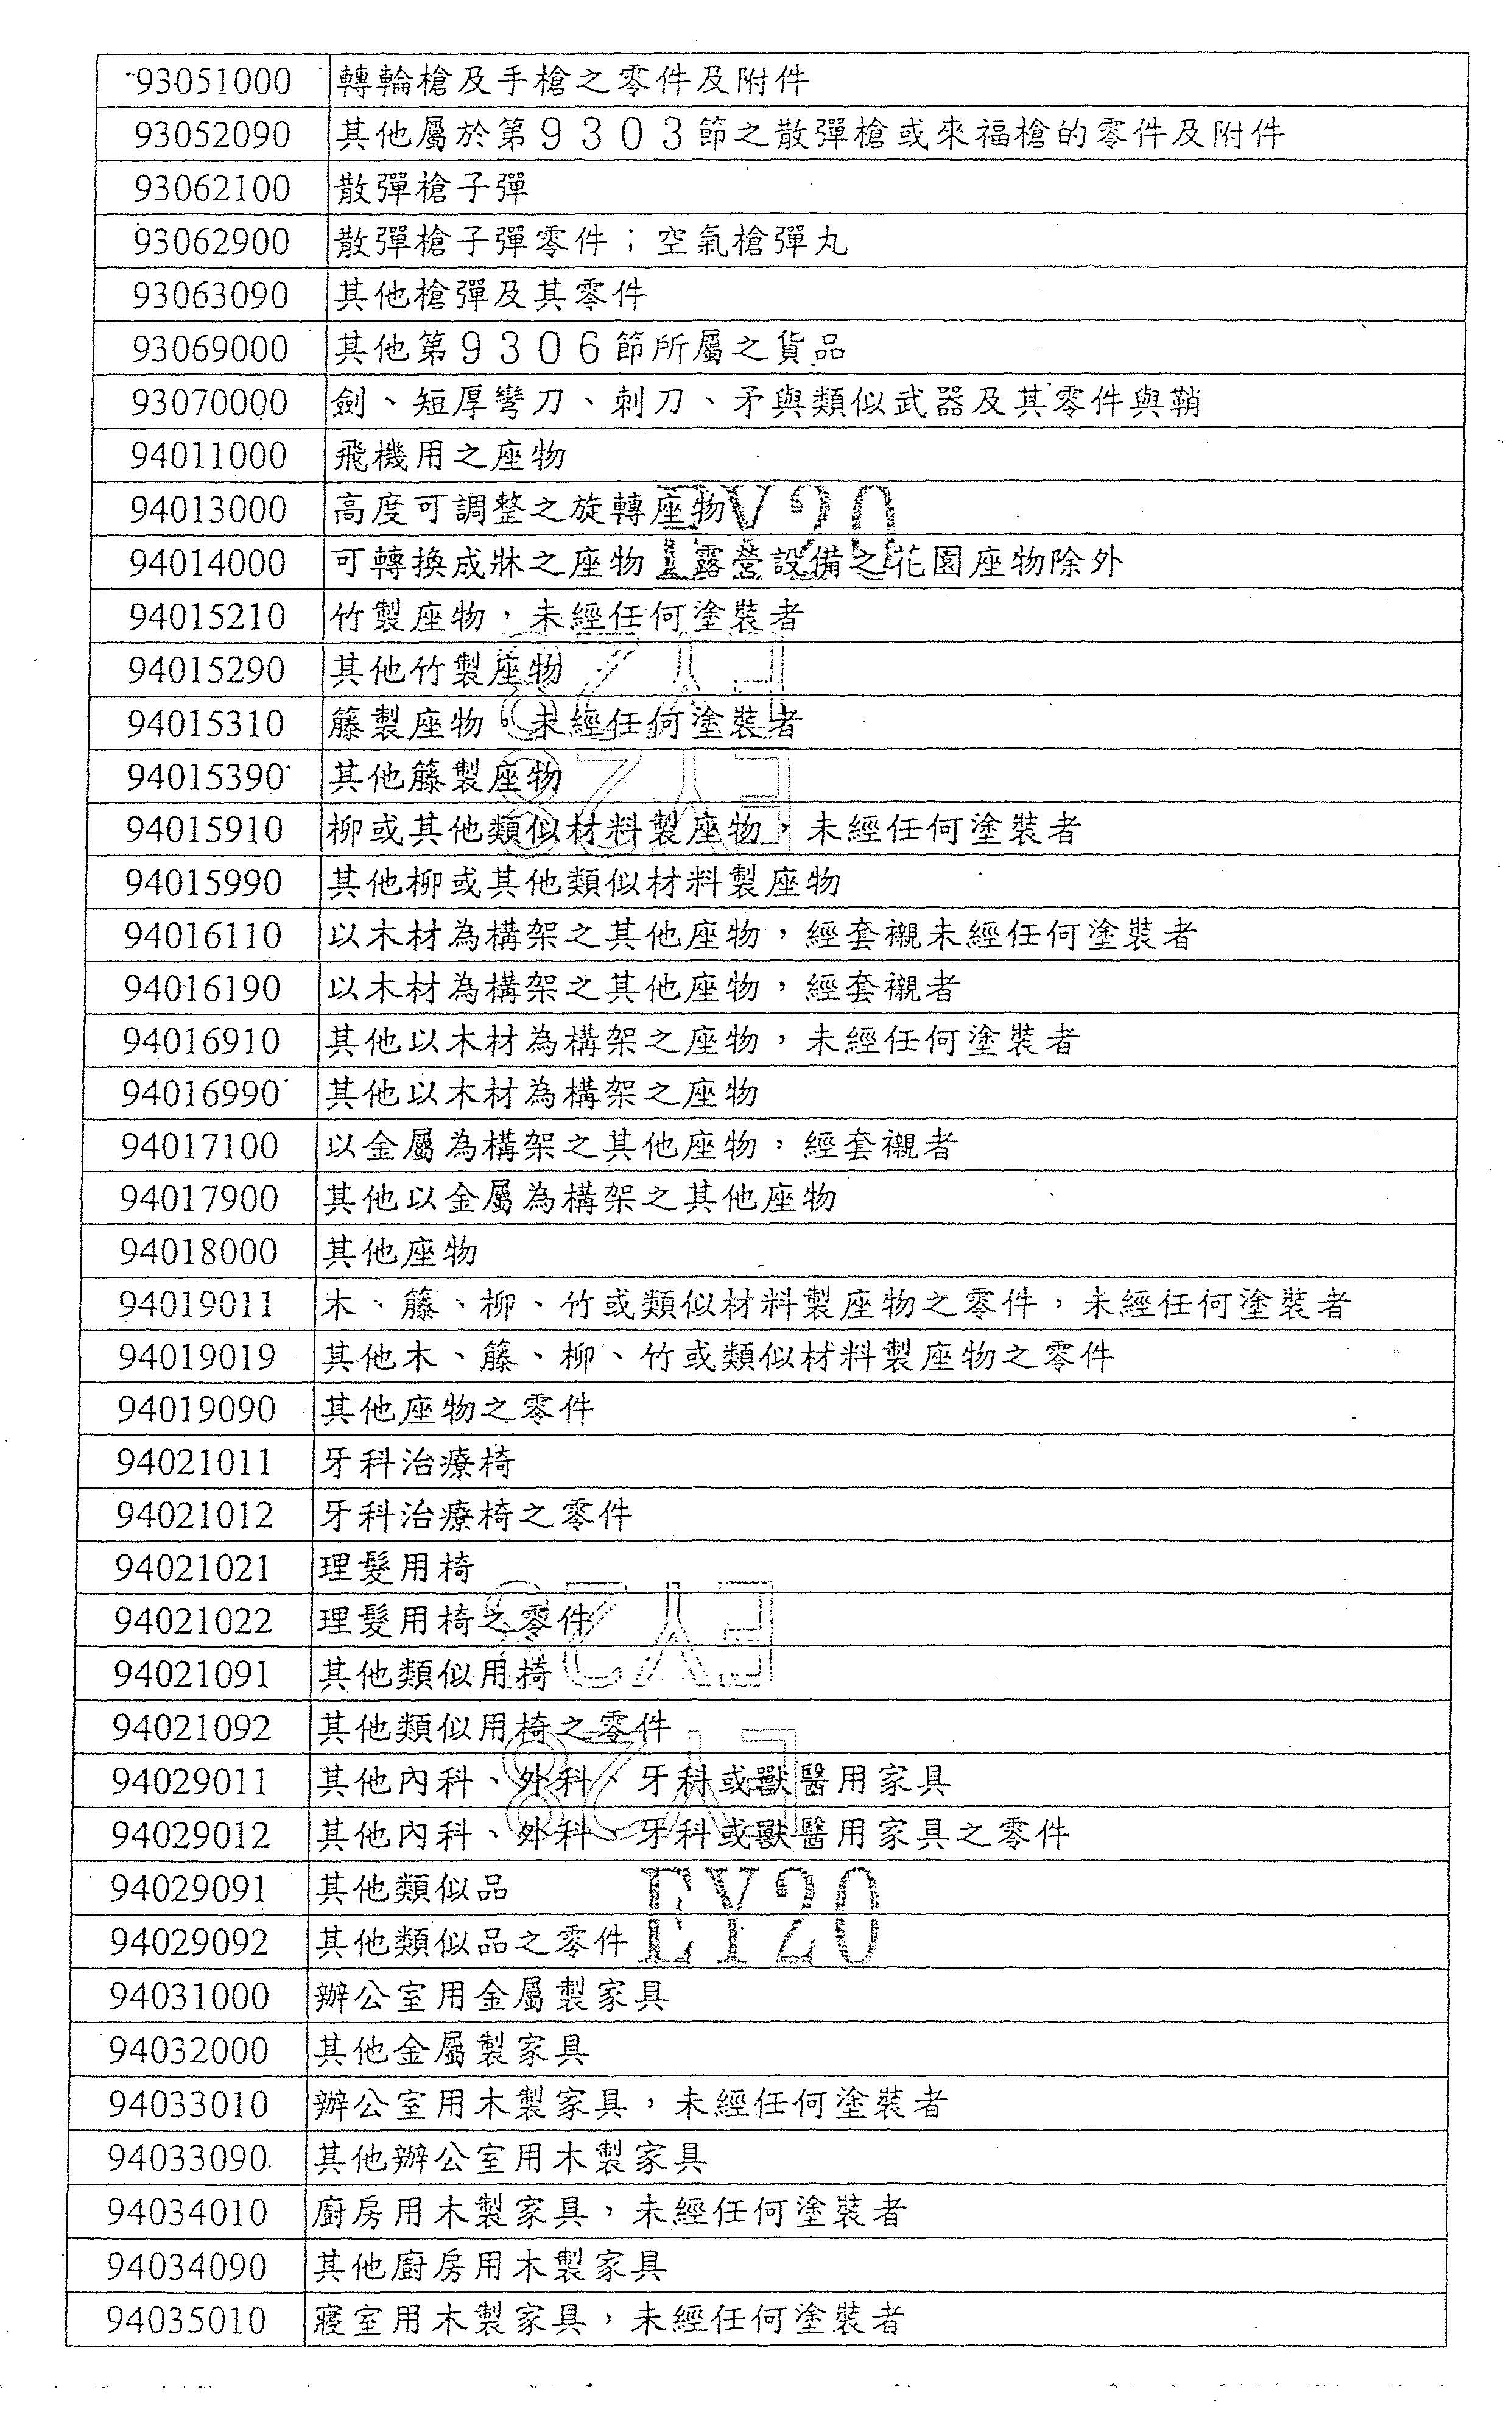 93051000 轉輪槍及手槍之零件及附件
93052090 其他屬於第９３０３節之散彈槍或來福槍的零件及附件
93062100 散彈槍子彈
93062900 散彈槍子彈零件；空氣槍彈丸
93063090 其他槍彈及其零件
93069000 其他第９３０６節所屬之貨品
93070000 劍、短厚彎刀、刺刀、矛與類似武器及其零件與鞘
94011000 飛機用之座物
94013000 高度可調整之旋轉座物
94014000 可轉換成牀之座物，露營設備之花園座物除外
94015210 竹製座物，未經任何塗裝者
94015290 其他竹製座物
94015310 籐製座物，未經任何塗裝者
94015390 其他籐製座物
94015910 柳或其他類似材料製座物，未經任何塗裝者
94015990 其他柳或其他類似材料製座物
94016110 以木材為構架之其他座物，經套襯未經任何塗裝者
94016190 以木材為構架之其他座物，經套襯者
94016910 其他以木材為構架之座物，未經任何塗裝者
94016990 其他以木材為構架之座物
94017100 以金屬為構架之其他座物，經套襯者
94017900 其他以金屬為構架之其他座物
94018000 其他座物
94019011 木、籐、柳、竹或類似材料製座物之零件，未經任何塗裝者
94019019 其他木、籐、柳、竹或類似材料製座物之零件
94019090 其他座物之零件
94021011 牙科治療椅
94021012 牙科治療椅之零件
94021021 理髮用椅
94021022 理髮用椅之零件
94021091 其他類似用椅
94021092 其他類似用椅之零件
94029011 其他內科、外科、牙科或獸醫用家具
94029012 其他內科、外科、牙科或獸醫用家具之零件
94029091 其他類似品
94029092 其他類似品之零件
EY20
94031000 辦公室用金屬製家具
94032000 其他金屬製家具
94033010 辦公室用木製家具，未經任何塗裝者
94033090 其他辦公室用木製家具
94034010 廚房用木製家具，未經任何塗裝者
94034090 其他廚房用木製家具
94035010 寢室用木製家具，未經任何塗裝者